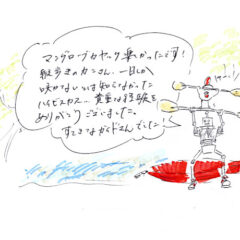 マングローブカヤック楽かったです!
縦歩きのカニさん、一日しか
咲かないとは知らなかった
ハイビスカス… 貴重な経験を
ありがとうございました。
すてきなガイドさんでした!